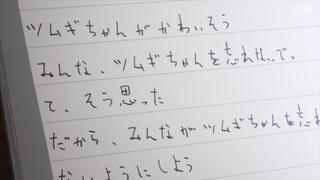 ツムギちゃんがかわいそう
みんな、ツムギちゃんを忘れないで。
て、そう思った
だから、みんながツムギちゃんを忘れ
ないようにしよう